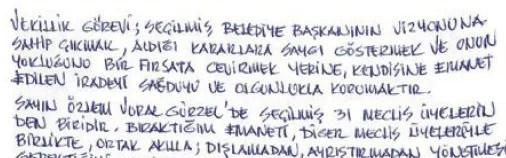 VEKİLLİK GÖREVİ; SEÇİLMİŞ BELEDİYE BAŞKANININ VİZYONUNA
SAHİP ÇIKMAK, ALDIĞI KARARLARA SAYGI GÖSTERMEK VE ONUN
YOKLUĞUNU BİR FIRSATA ÇEVİRMEK YERİNE, KENDİSİNE EMANET
EDİLEN İRADEYİ SAĞDUYU VE OLGUNLUKLA KORUMAKTIR.
SAYIN ÖZLEM VURAL GÜRZEL'DE SEÇİLMİŞ 31 MECLİS ÜYELERİN
DEN BİRİDİR. BIRAKTIĞIM EMANETİ, DİĞER MECLİS ÜYELERİYLE
BİRLİKTE, ORTAK AKILLA; DIŞLAMADAN, AYRIŞTIRMADAN YÖNETMESİ